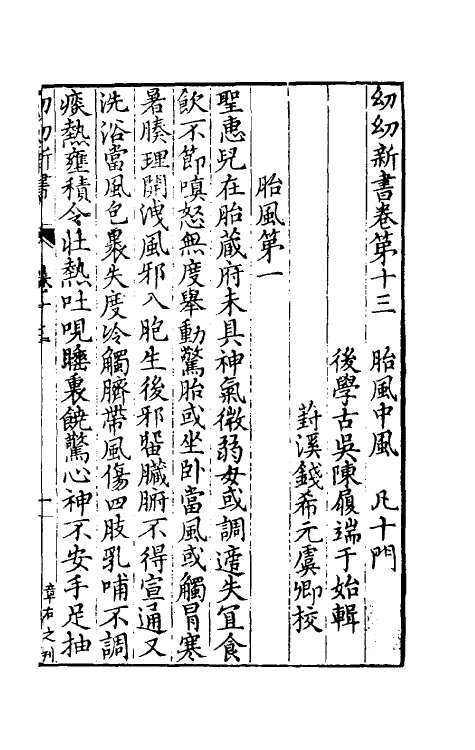 幼幼新書卷第十三 胎風中風 凡十門
後學古吳陳履端于始輯
葑溪錢希元虞卿校
胎風第一
聖惠兒在胎藏府未具神氣微弱母或調適失宜食
飲不節嗔怒無度舉動驚胎或坐卧當風或觸冒寒
暑腠理開洩風邪入胞生後邪留臟腑不得宣通又
洗浴當風包裹失度冷觸臍帶風傷四肢乳哺不調
痰熱壅積令壯熱吐哯睡裏饒驚心神不安手足抽
幼幼新書 卷十三 一 章右之刋